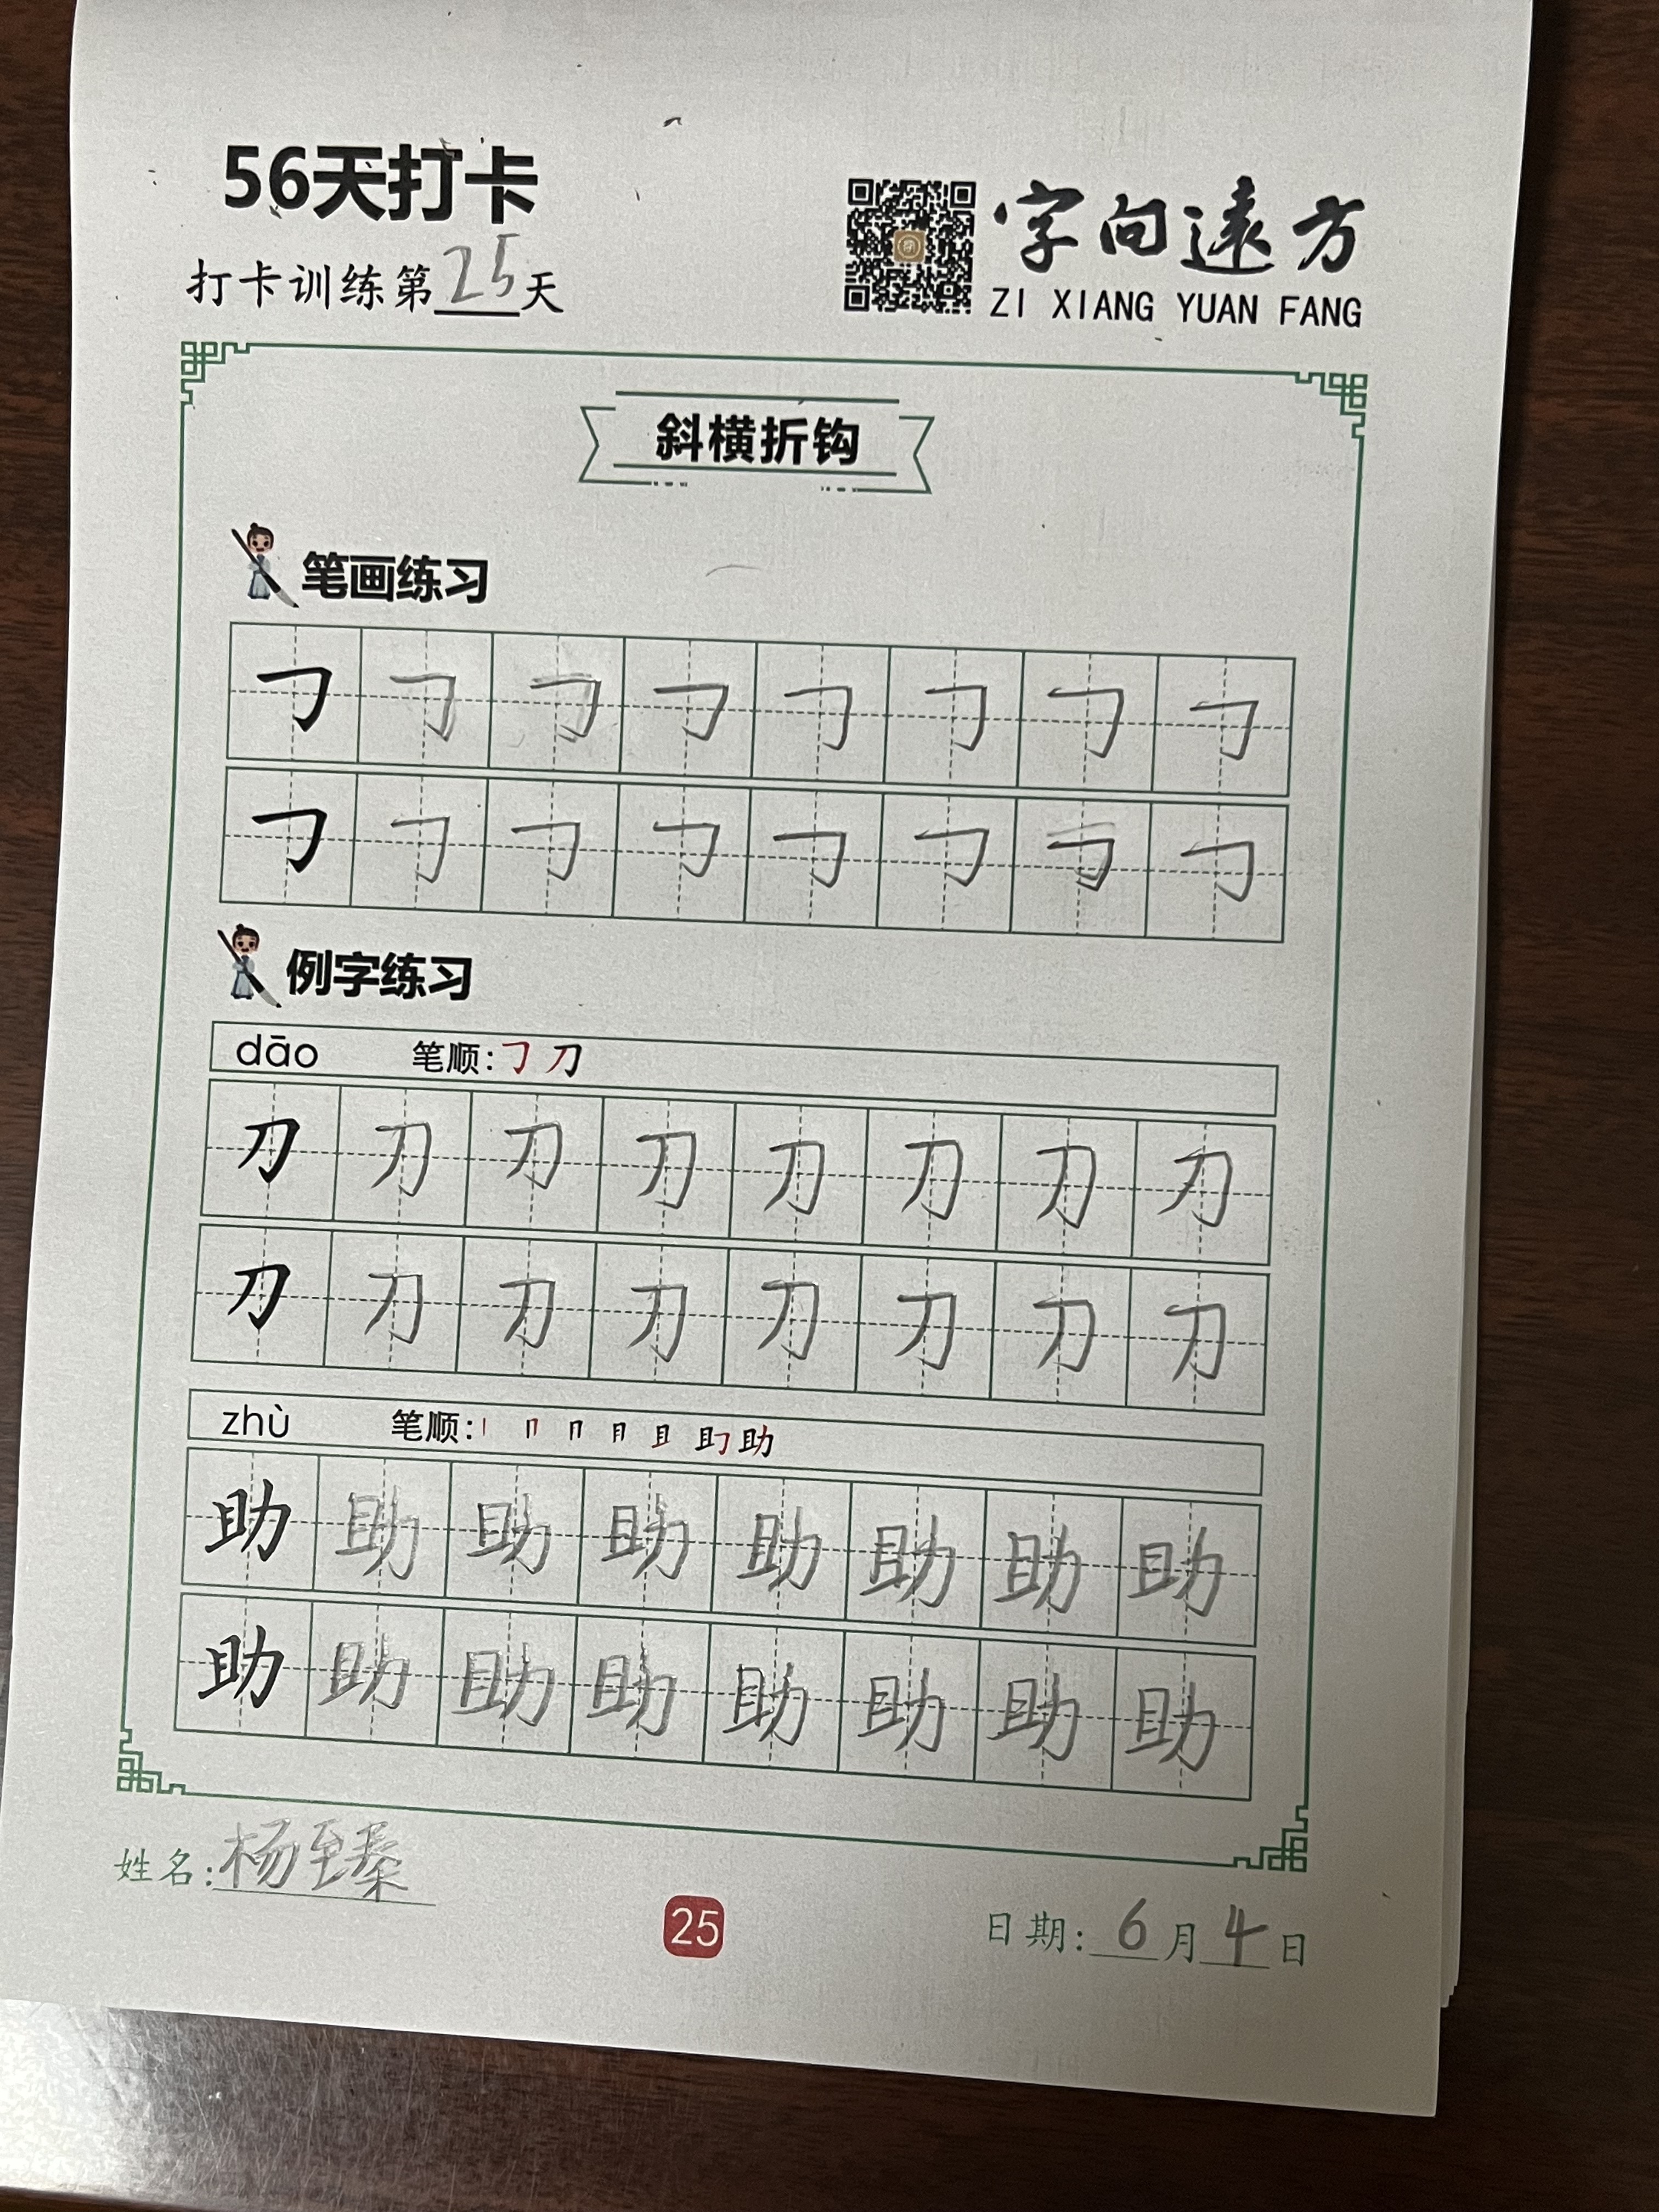 56天打卡
打卡训练第25天
字向遠方
ZI XIANG YUAN FANG
斜横折钩
笔画练习
𠃌 𠃌 𠃌 𠃌 𠃌 𠃌 𠃌 𠃌
𠃌 𠃌 𠃌 𠃌 𠃌 𠃌 𠃌 𠃌
例字练习
dāo 笔顺:𠃌 刀
刀 刀 刀 刀 刀 刀 刀 刀
刀 刀 刀 刀 刀 刀 刀 刀
zhù 笔顺: 助
助 助 助 助 助 助 助 助
助 助 助 助 助 助 助 助
姓名:杨至臻
25
日期:6月4日